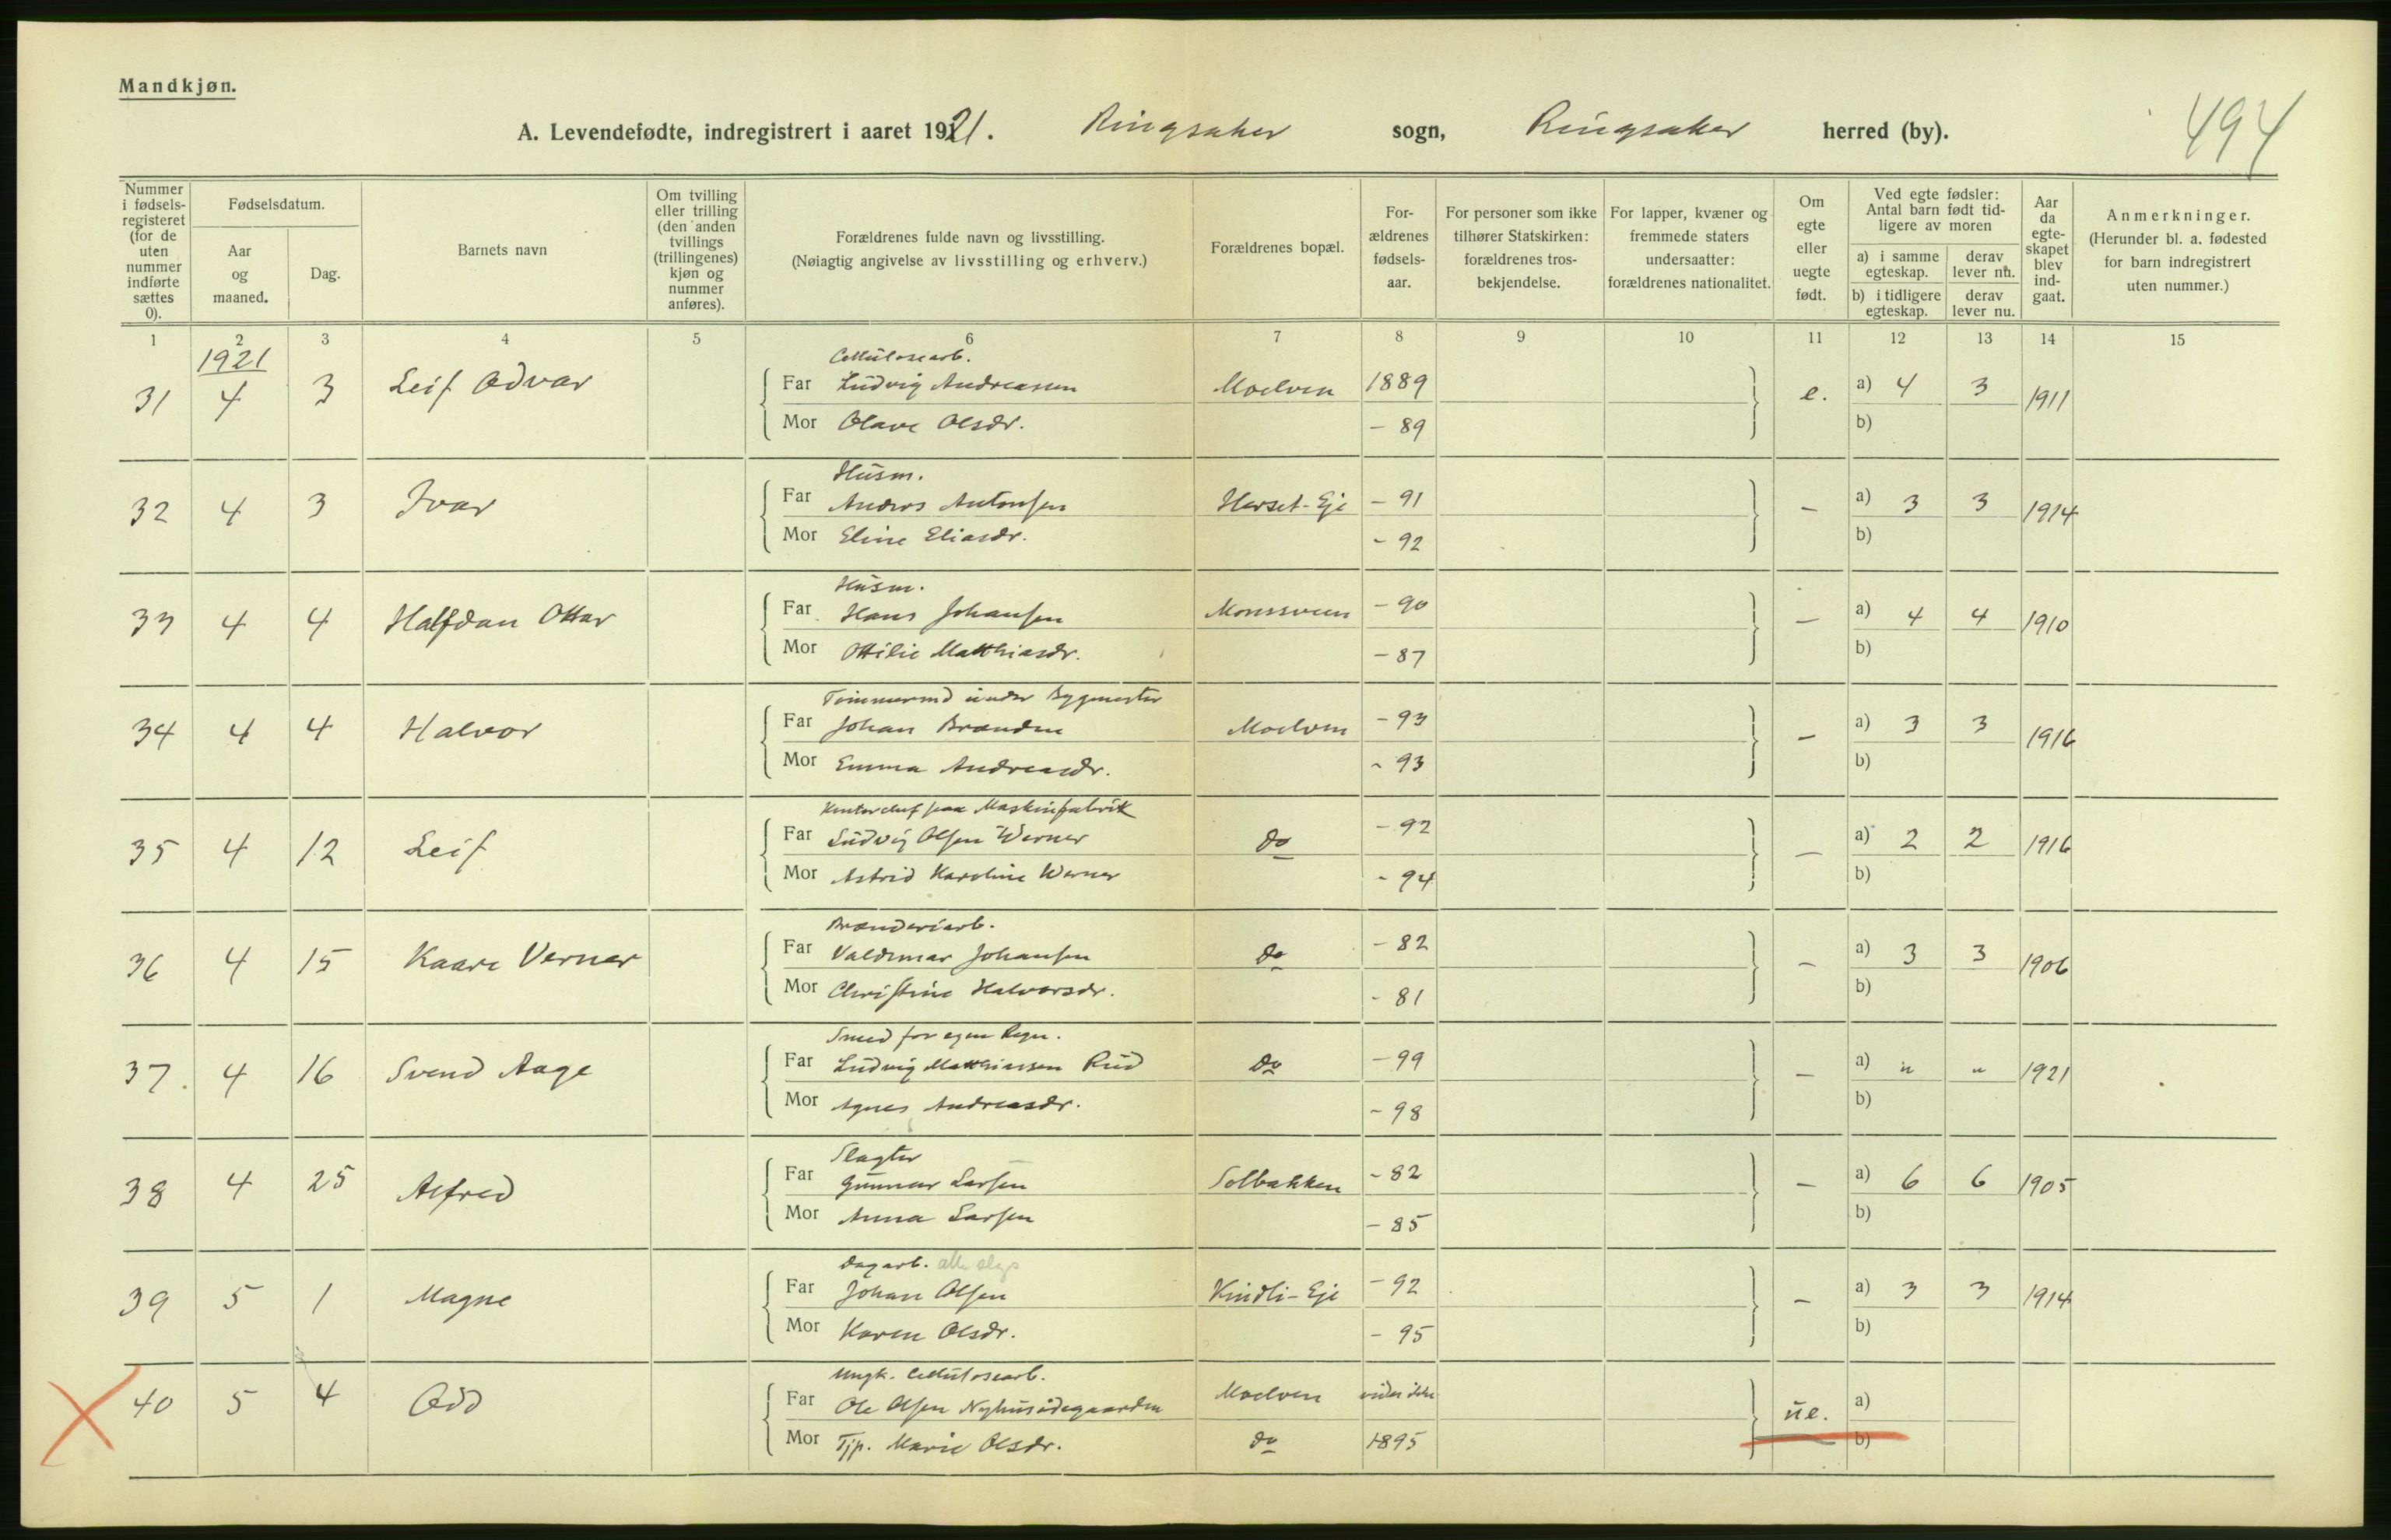 Mandkjøn.
A. Levendefødte, indregistrert i aaret 1921. Ringsaker sogn, Ringsaker herred (by).
494
Nummer i fødsels-registeret (for de uten nummer indførte sættes 0).
Fødselsdatum.
Aar og maaned.
Dag.
Barnets navn
Om tvilling eller trilling (den anden tvillings (trillingenes) kjøn og nummer anføres).
Forældrenes fulde navn og livsstilling.
(Nøiagtig angivelse av livsstilling og erhverv.)
Forældrenes bopæl.
For-ældrenes fødsels-aar.
For personer som ikke tilhører Statskirken: forældrenes tros-bekjendelse.
For lapper, kvæner og fremmede staters undersaatter: forældrenes nationalitet.
Om egte eller uegte født.
Ved egte fødsler: Antal barn født tid-ligere av moren
a) i samme egteskap. derav lever nu.
b) i tidligere egteskap. derav lever nu.
Aar da egte-skapet blev ind-gaat.
Anmerkninger.
(Herunder bl. a. fødested for barn indregistrert uten nummer.)
1 2 3 4 5 6 7 8 9 10 11 12 13 14 15
1921
Cellulosearb.
31 4 3 Leif Odvar Far Ludvig Andreassen Moelven 1889 e. a) 4 3 1911
Mor Olave Olsdr. – 89 b)
Husm.
32 4 3 Ivar Far Anders Antonsen Herset-Eje – 91 – a) 3 3 1914
Mor Eline Eliasdr. – 92 b)
Husm.
33 4 4 Halfdan Ottar Far Hans Johansen Monssveen – 90 – a) 4 4 1910
Mor Ottilie Matthiasdr. – 87 b)
Tømmermd under Bygmester
34 4 4 Halvor Far Johan Branden Moelven – 93 – a) 3 3 1916
Mor Emma Andreasdr. – 93 b)
Kontorchef paa Maskinfabrik
35 4 12 Leif Far Ludvig Olsen Werner do – 92 – a) 2 2 1916
Mor Astrid Karoline Werner – 94 b)
Brænderiarb.
36 4 15 Kaare Verner Far Valdemar Johansen do – 82 – a) 3 3 1906
Mor Christine Halvorsdr. – 81 b)
Smed for egen Regn.
37. 4 16 Svend Aage Far Ludvig Matthiassen Rud do – 99 – a) " " 1921
Mor Agnes Andreasdr. – 98 b)
Slagter
38 4 25 Alfred Far Gunnar Larsen Solbakken – 82 – a) 6 6 1905
Mor Anna Larsen – 85 b)
Dagarb. alle slags
39 5 1 Magne Far Johan Olsen Kindli-Eje – 92 – a) 3 3 1914
Mor Karen Olsdr. – 95 b)
Ungk. Cellulosearb.
40 5 4 Odd Far Ole Olsen Nyhusødegaarden Moelven vides ikke ue. a)
Mor Tjp. Marie Olsdr. do 1895 b)